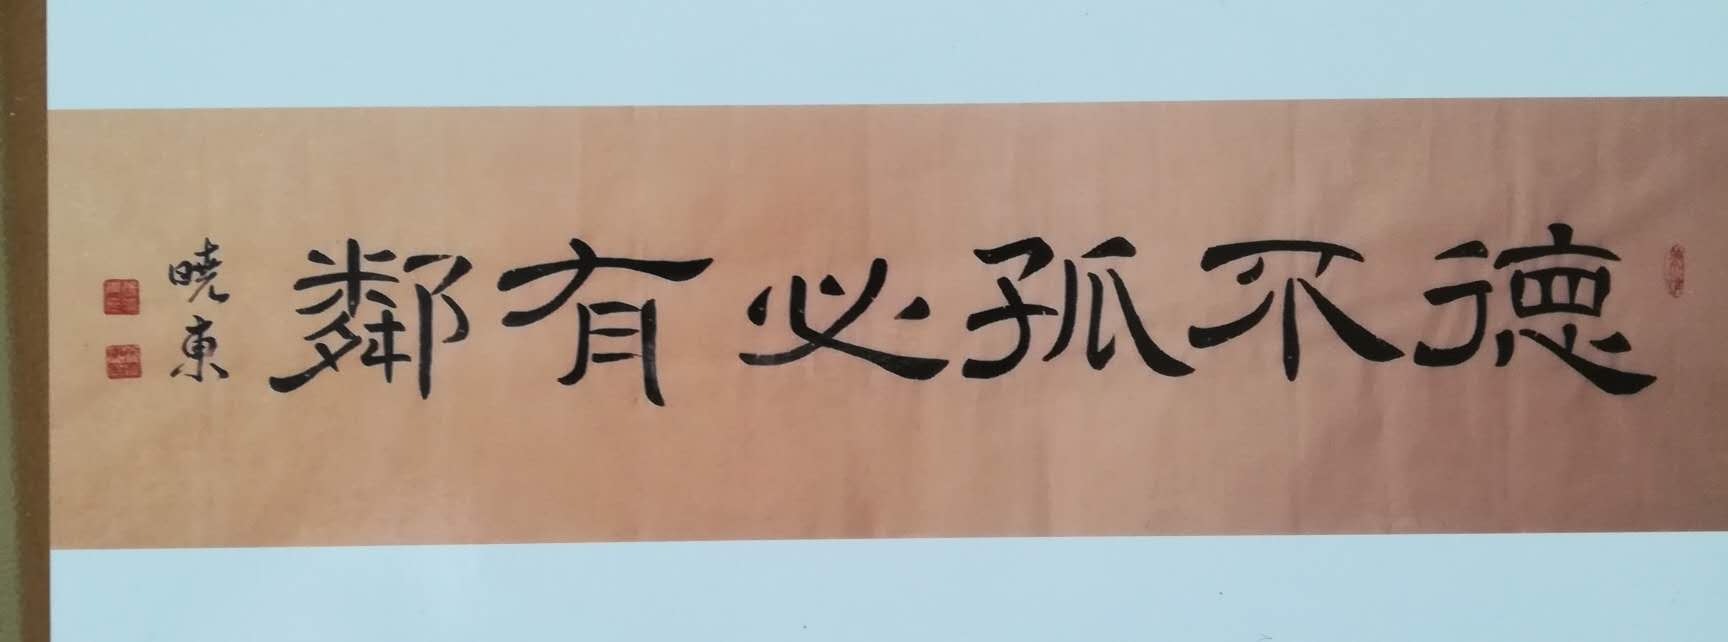 德不孤必有鄰
曉東